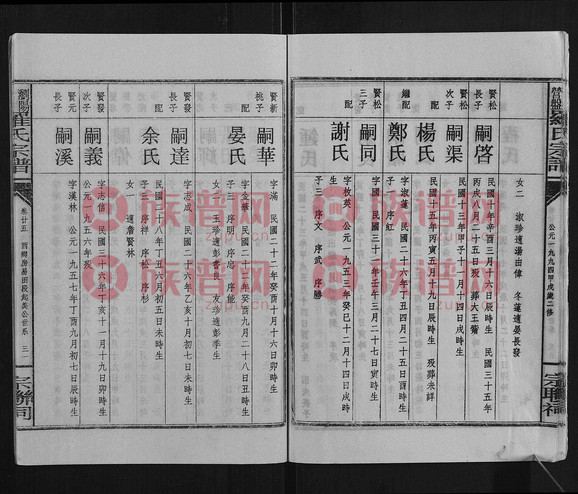 公元一九九四甲戌歲二修
女二 淑珍適湯由偉 冬蓮適晏長發
賢松長子 嗣啓 民國十年辛酉三月十六日辰時生 民國三十五年
丙戌六月二十五日歿 葬大王衝
賢松次子 嗣渠 民國十三年甲子六月十四日戌時生
配 楊氏 民國十五年丙寅五月十九日辰時生 歿葬未詳
繼配 鄭氏 字淑蓮 民國二十六年丁丑十二月四日酉時生
子一 序紅
賢松三子 嗣同 字 民國三十年
配 謝氏 字枚英 公元一九五三年癸巳十二月十四日戌時生
子三 序文 序武 序勝
瀏陽羅氏宗譜
卷廿五
宗聯祠
賢新桃子 嗣華 字滿 民國二十二年癸酉十月十六日卯時生
配 晏氏 字金華 民國二十二年癸酉九月二十八日丑時生
子三 序明 序忠 序能
女二 玉珍適彭會良 友珍適彭季生
賢發長子 嗣達 字志成 民國二十六年乙亥十月初七日未時生
配 余氏 民國二十八年丁丑六月初五日未時生
子三 序祥 序松 序杉
女一 適詹賢林
賢發次子 嗣義 字志信 民國三十六年丁亥十一月十九日卯時生
公元一九五六年歿
賢元長子 嗣溪 字漢林 公元一九五七年丁酉九月初七日辰時生